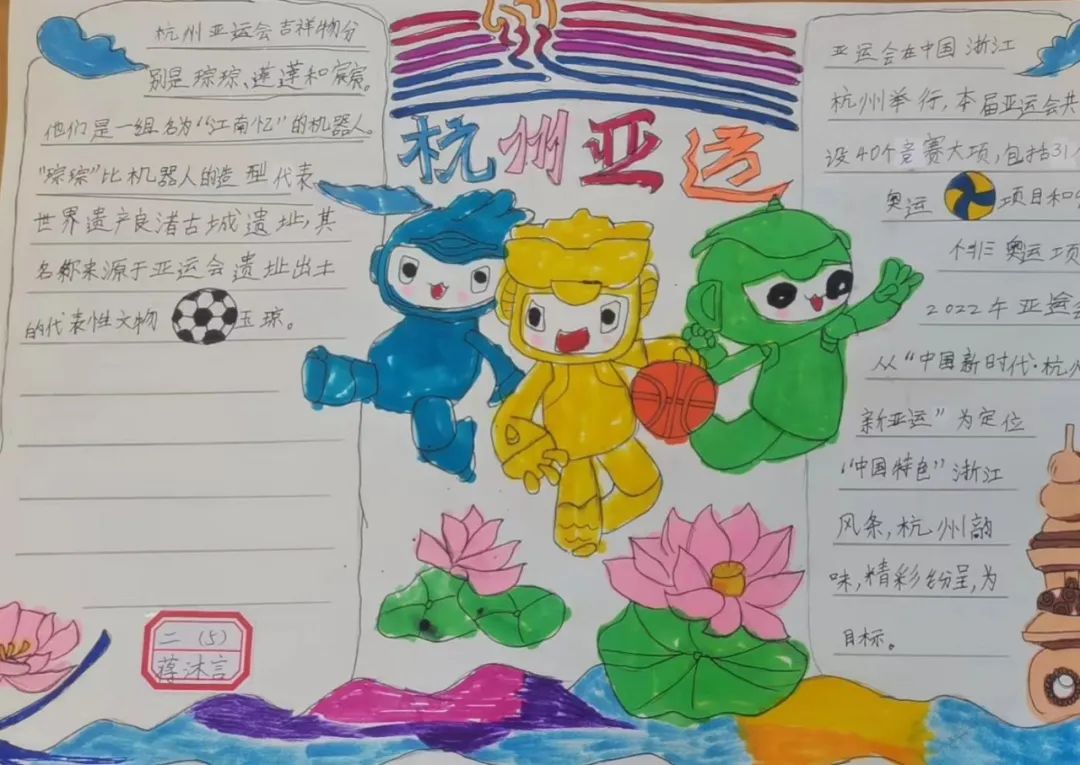 杭州亚运
杭州亚运会吉祥物分
别是琮琮、莲莲和宸宸。
他们是一组名为“江南忆”的机器人。
“琮琮”比机器人的造型代表
世界遗产良渚古城遗址,其
名称来源于亚运会遗址出土
的代表性文物玉琮。
二(5)
蒋沐言
亚运会在中国浙江
杭州举行,本届亚运会共
设40个竞赛大项,包括31
奥运项目和
个非奥运项
2022年亚运
从“中国新时代·杭
新亚运”为定位
“中国特色”浙江
风条,杭州韵
味,精彩纷呈,为
目标。